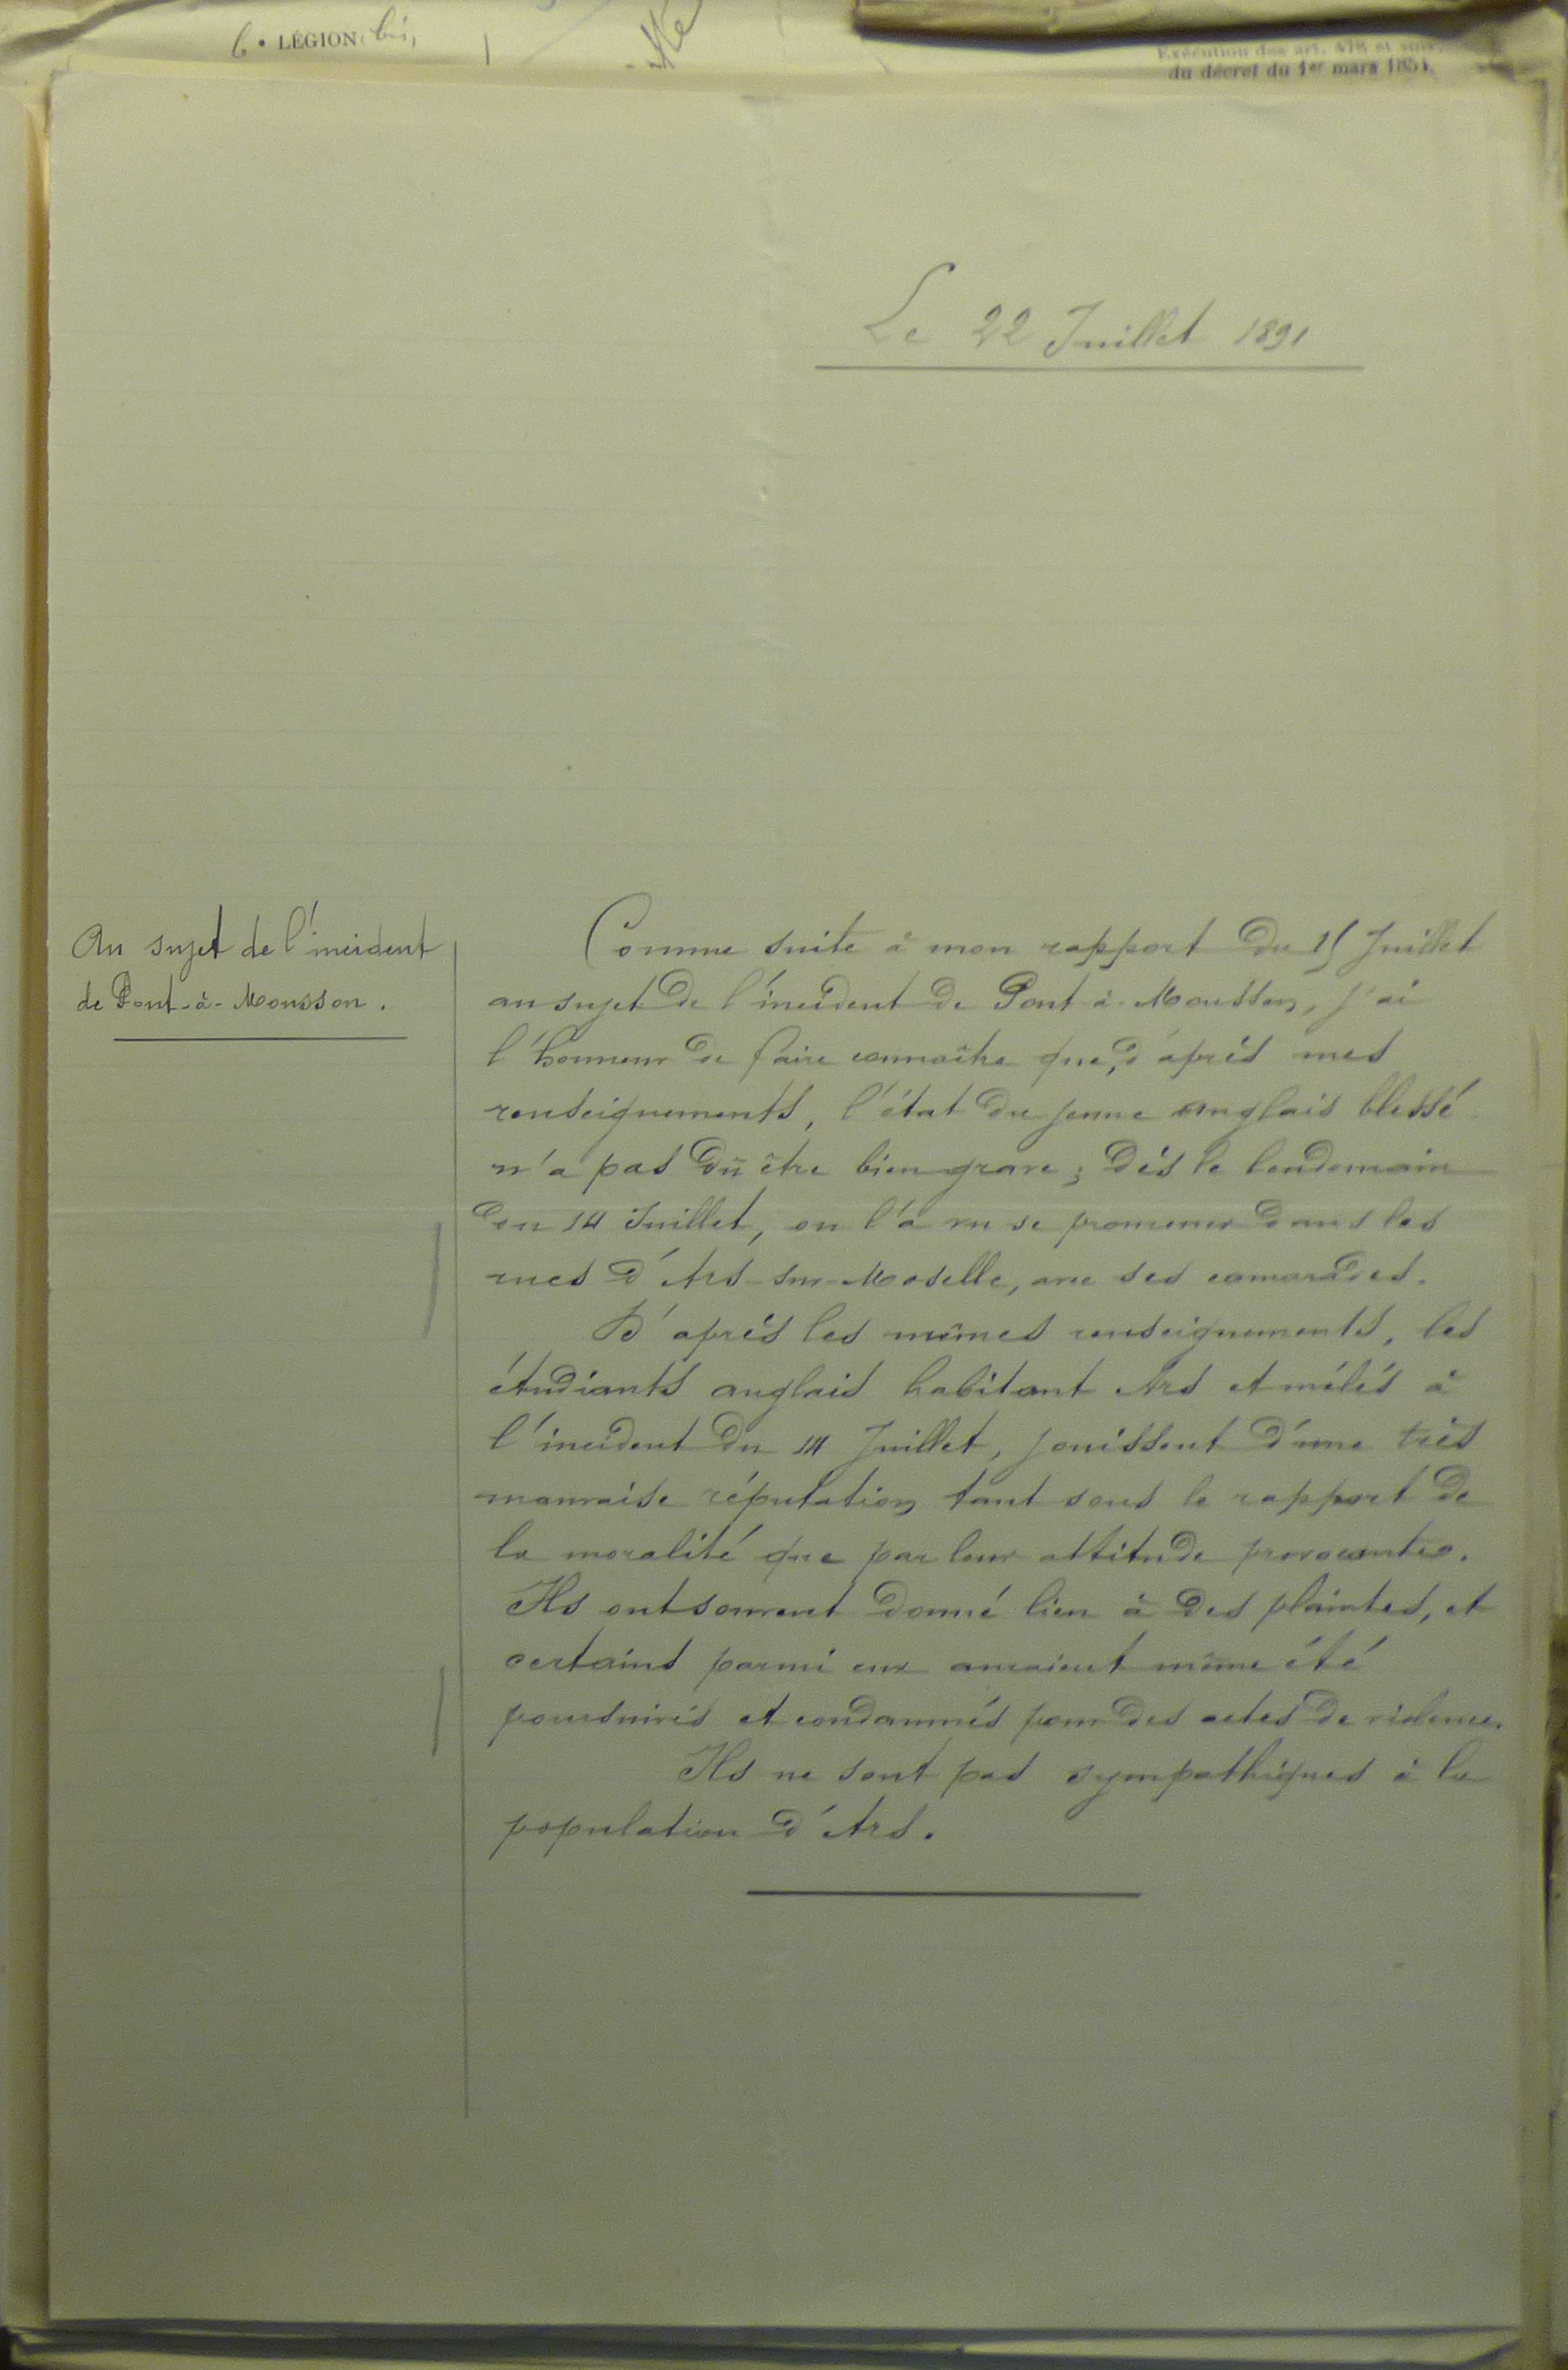 6e LÉGION bis
Exécution des art. 478 et suiv.
du décret du 1er mars 1854.
Le 22 Juillet 1891
Au sujet de l'incident
de Pont-à-Mousson.
Comme suite à mon rapport du 15 Juillet
au sujet de l'incident de Pont-à-Mousson, j'ai
l'honneur de faire connaître que, d'après mes
renseignements, l'état du jeune anglais blessé
n'a pas dû être bien grave ; dès le lendemain
du 14 Juillet, on l'a vu se promener dans les
rues d'Ars-sur-Moselle, avec ses camarades.
D'après les mêmes renseignements, les
étudiants anglais habitant Ars et mêlés à
l'incident du 14 Juillet, jouissent d'une très
mauvaise réputation tant sous le rapport de
la moralité que par leur attitude provocante.
Ils ont souvent donné lieu à des plaintes, et
certains parmi eux auraient même été
poursuivis et condamnés pour des actes de violence.
Ils ne sont pas sympathiques à la
population d'Ars.